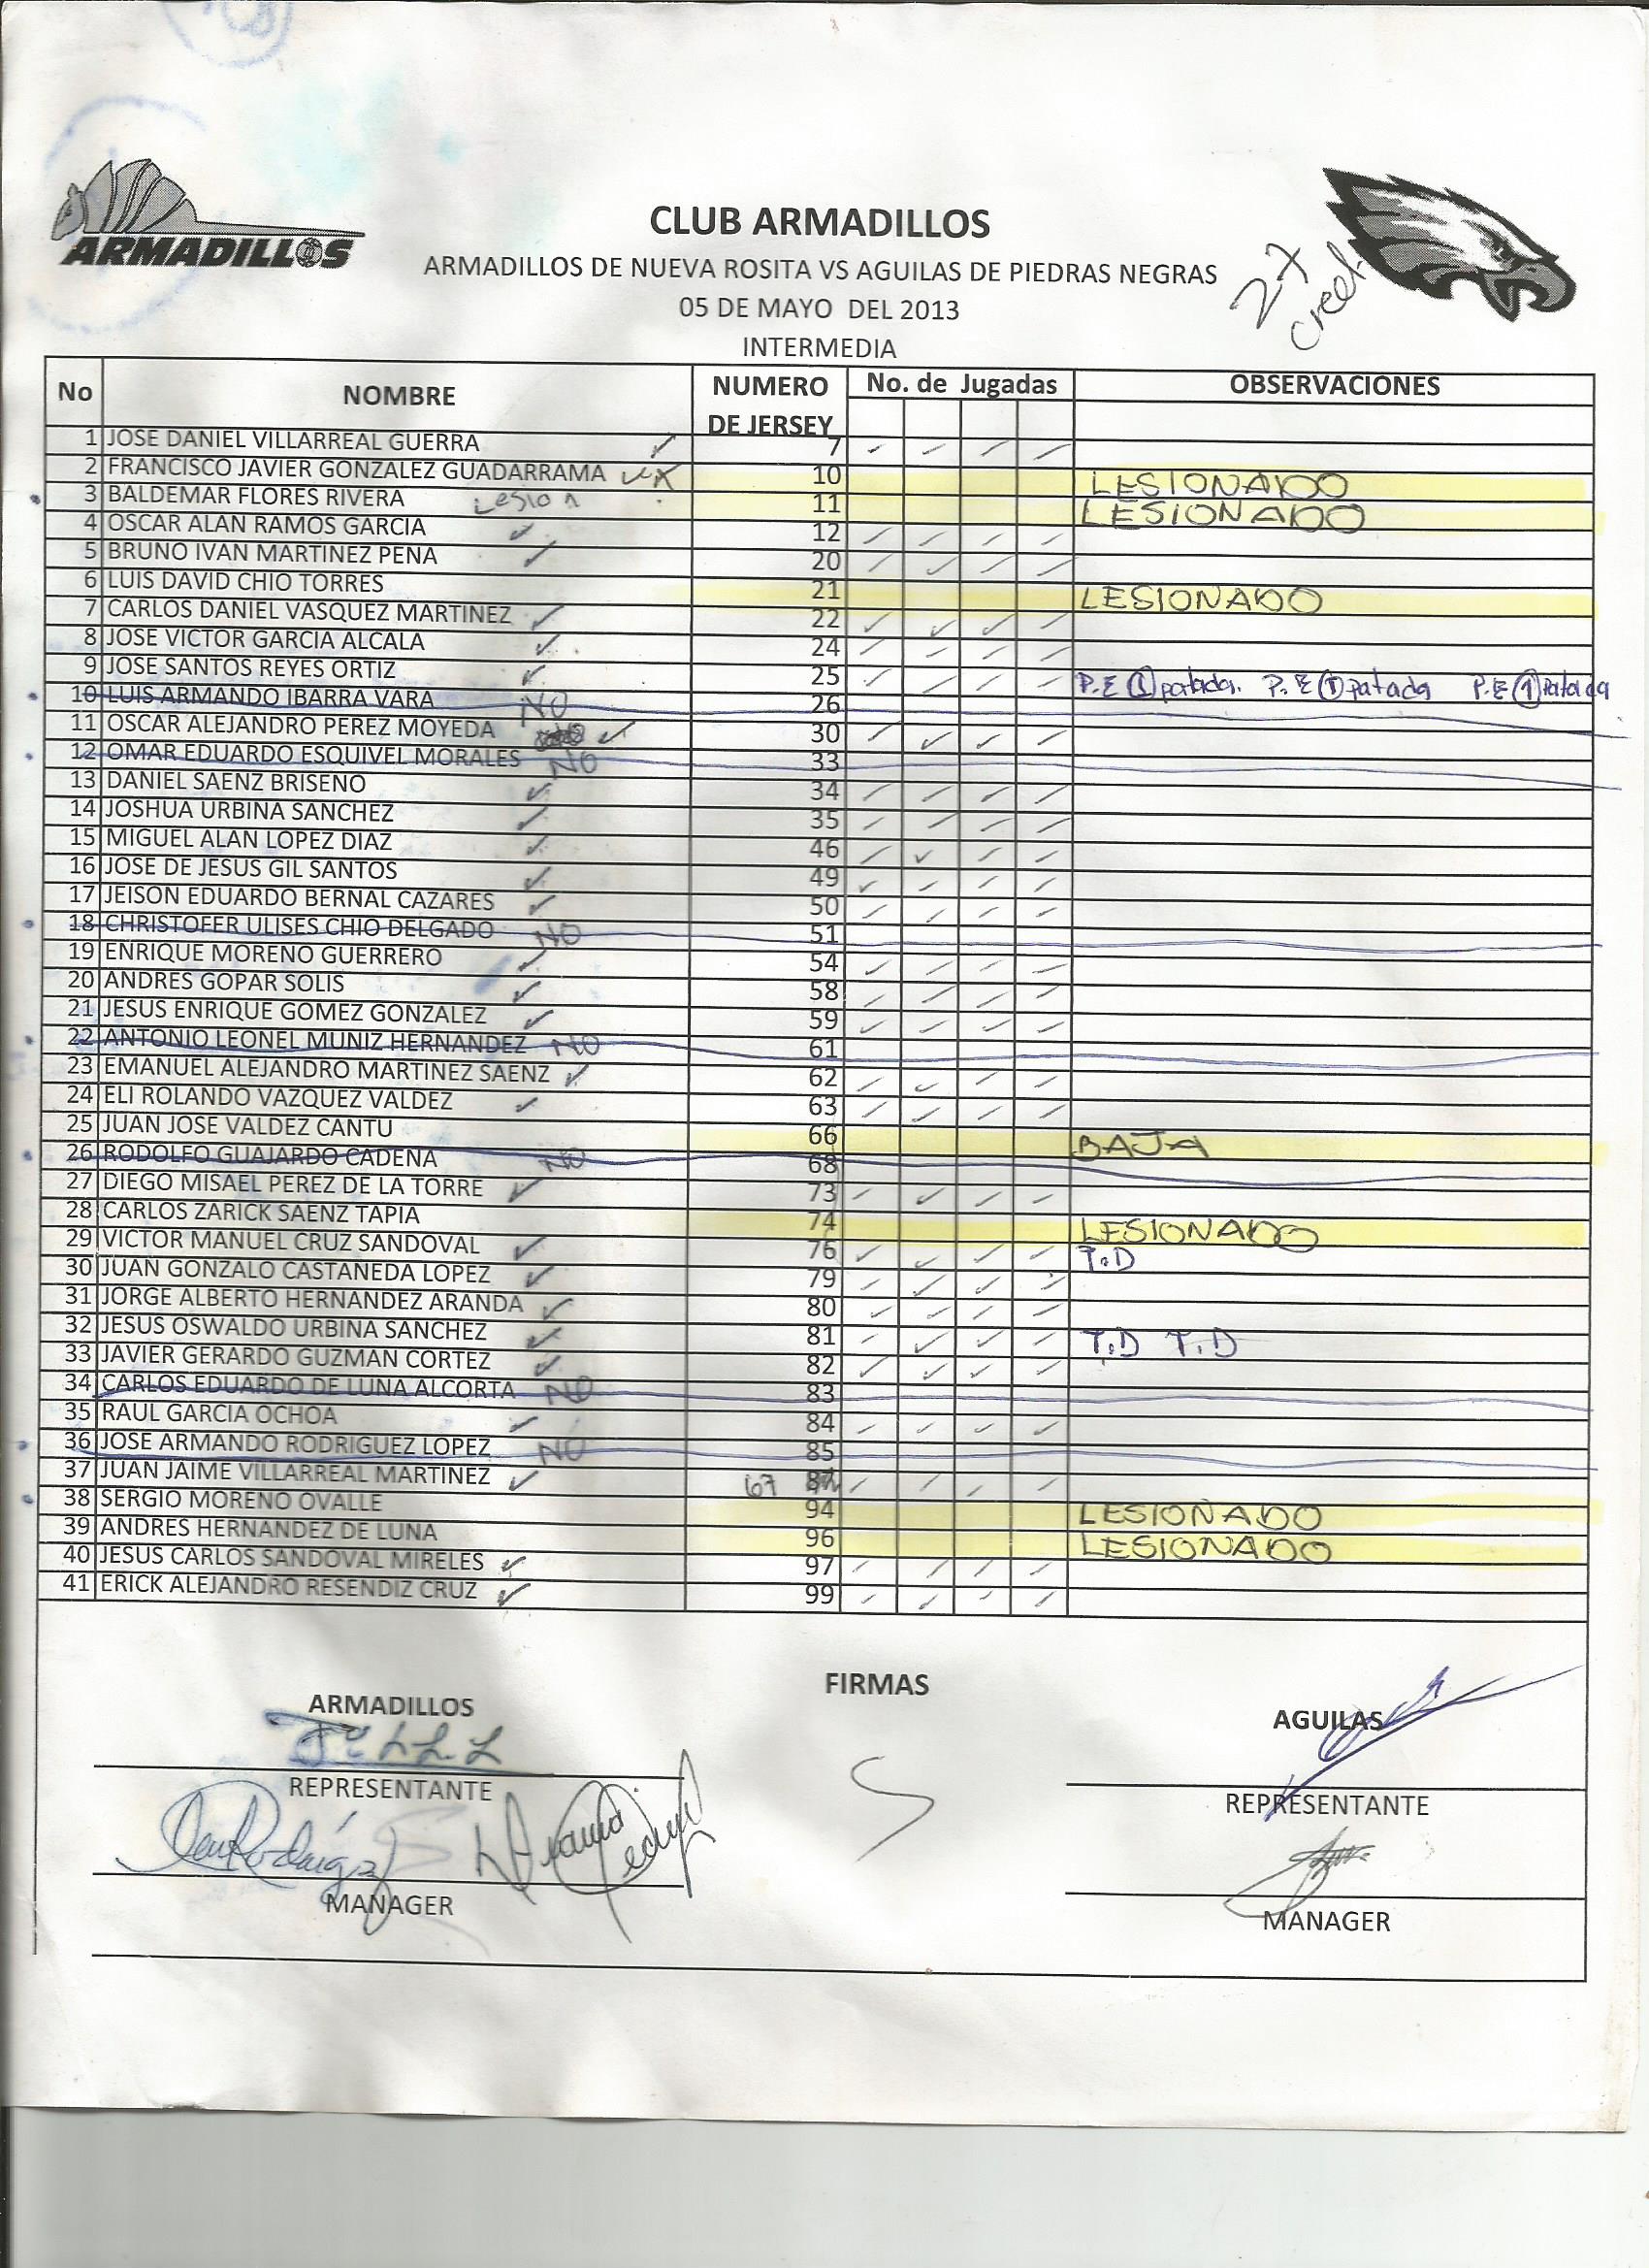 ARMADILLOS
CLUB ARMADILLOS
ARMADILLOS DE NUEVA ROSITA VS AGUILAS DE PIEDRAS NEGRAS
27
05 DE MAYO DEL 2013
INTERMEDIA
No NOMBRE NUMERO DE JERSEY No. de Jugadas OBSERVACIONES
1 JOSE DANIEL VILLARREAL GUERRA 7
2 FRANCISCO JAVIER GONZALEZ GUADARRAMA 10 LESIONADO
3 BALDEMAR FLORES RIVERA Lesion 11 LESIONADO
4 OSCAR ALAN RAMOS GARCIA 12
5 BRUNO IVAN MARTINEZ PENA 20
6 LUIS DAVID CHIO TORRES 21 LESIONADO
7 CARLOS DANIEL VASQUEZ MARTINEZ 22
8 JOSE VICTOR GARCIA ALCALA 24
9 JOSE SANTOS REYES ORTIZ 25 P.E 1 patada. P.E 1 patada P.E 1 patada
10 LUIS ARMANDO IBARRA VARA NO 26
11 OSCAR ALEJANDRO PEREZ MOYEDA 30
12 OMAR EDUARDO ESQUIVEL MORALES NO 33
13 DANIEL SAENZ BRISENO 34
14 JOSHUA URBINA SANCHEZ 35
15 MIGUEL ALAN LOPEZ DIAZ 46
16 JOSE DE JESUS GIL SANTOS 49
17 JEISON EDUARDO BERNAL CAZARES 50
18 CHRISTOFER ULISES CHIO DELGADO NO 51
19 ENRIQUE MORENO GUERRERO 54
20 ANDRES GOPAR SOLIS 58
21 JESUS ENRIQUE GOMEZ GONZALEZ 59
22 ANTONIO LEONEL MUNIZ HERNANDEZ NO 61
23 EMANUEL ALEJANDRO MARTINEZ SAENZ 62
24 ELI ROLANDO VAZQUEZ VALDEZ 63
25 JUAN JOSE VALDEZ CANTU 66 BAJA
26 RODOLFO GUAJARDO CADENA NO 68
27 DIEGO MISAEL PEREZ DE LA TORRE 73
28 CARLOS ZARICK SAENZ TAPIA 74 LESIONADO
29 VICTOR MANUEL CRUZ SANDOVAL 76 T.D
30 JUAN GONZALO CASTAÑEDA LOPEZ 79
31 JORGE ALBERTO HERNANDEZ ARANDA 80
32 JESUS OSWALDO URBINA SANCHEZ 81 T.D T.D
33 JAVIER GERARDO GUZMAN CORTEZ 82
34 CARLOS EDUARDO DE LUNA ALCORTA NO 83
35 RAUL GARCIA OCHOA 84
36 JOSE ARMANDO RODRIGUEZ LOPEZ NO 85
37 JUAN JAIME VILLARREAL MARTINEZ 67
38 SERGIO MORENO OVALLE 94 LESIONADO
39 ANDRES HERNANDEZ DE LUNA 96 LESIONADO
40 JESUS CARLOS SANDOVAL MIRELES 97
41 ERICK ALEJANDRO RESENDIZ CRUZ 99
FIRMAS
ARMADILLOS AGUILAS
REPRESENTANTE REPRESENTANTE
MANAGER MANAGER